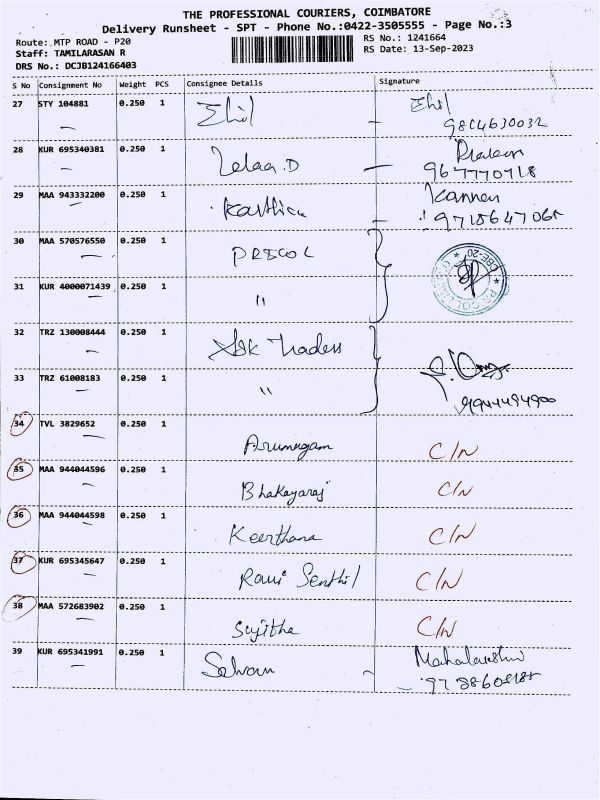 THE PROFESSIONAL COURIERS, COIMBATORE
Delivery Runsheet - SPT - Phone No.:0422-3505555 - Page No.:3
Route: MTP ROAD - P20
RS No.: 1241664
Staff: TAMILARASAN R
RS Date: 13-Sep-2023
DRS No.: DCJB124166403
S No Consignment No Weight PCS Consignee Details Signature
27 STY 104881 0.250 1
28 KUR 695340381 0.250 1
29 MAA 943332200 0.250 1 Karthica Kannan
30 MAA 570576550 0.250 1 PRECOL
31 KUR 4000071439 0.250 1 "
32 TRZ 130008444 0.250 1 Traders
33 TRZ 61008183 0.250 1 "
34 TVL 3829652 0.250 1 Arumugam C/N
35 MAA 944044596 0.250 1 Bhakayaraj C/N
36 MAA 944044598 0.250 1 Keerthana C/N
37 KUR 695345647 0.250 1 Ravi Senthil C/N
38 MAA 572683902 0.250 1 Sujitha C/N
39 KUR 695341991 0.250 1 Selvam Mahalakshmi